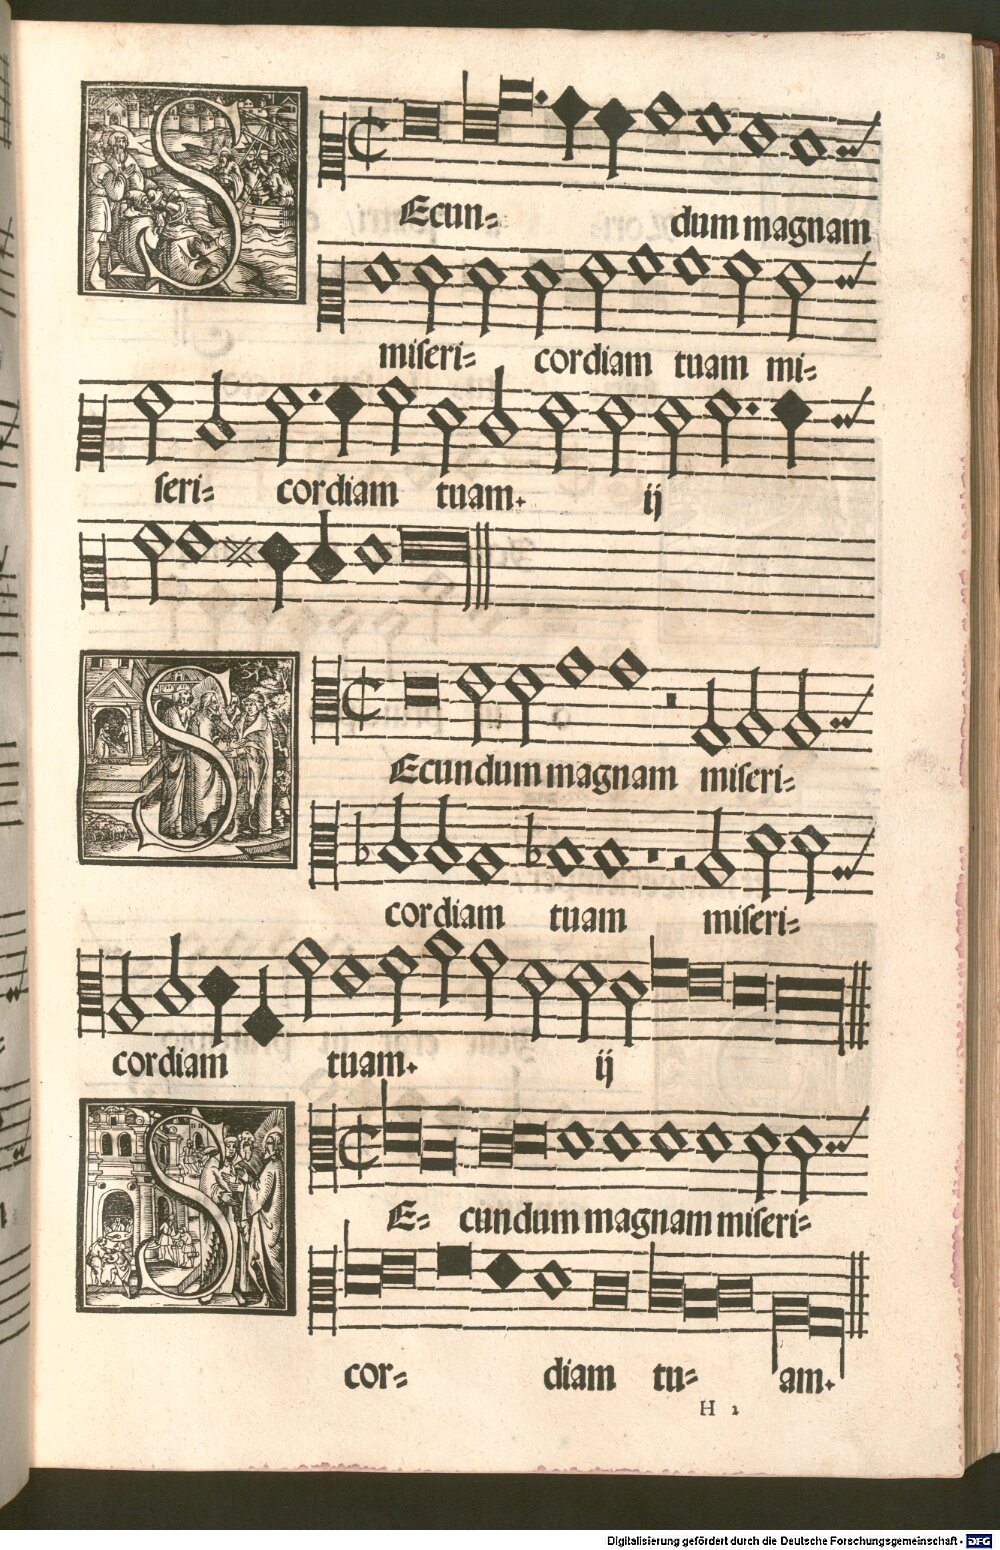 30
SEcun= dum magnam
miseri= cordiam tuam mi=
seri= cordiam tuam. ij
SEcundum magnam miseri=
cordiam tuam miseri=
cordiam tuam. ij
SE= cundum magnam miseri=
cor= diam tu= am.
H 2
Digitalisierung gefördert durch die Deutsche Forschungsgemeinschaft - DFG